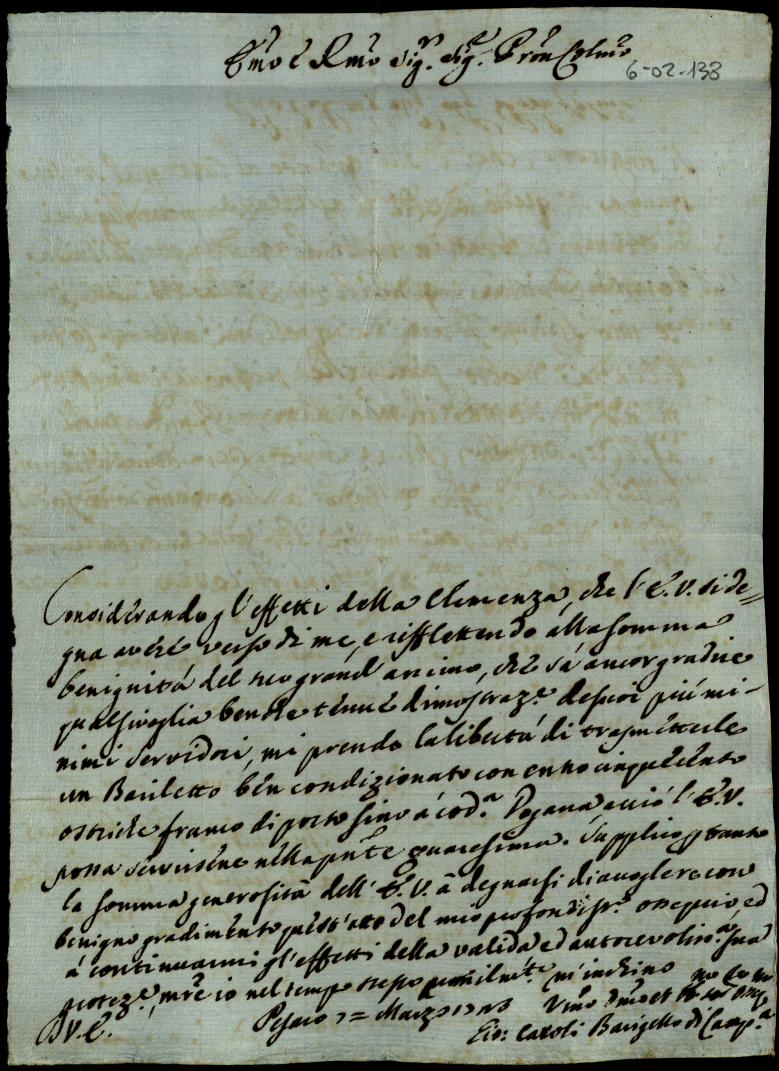 Emo e Rmo Sig.r Sig.re Pron Colmo
6-02-138
Considerando gl'effetti della Clemenza, che l'E.V. si de=
gna avere verso di me, e riflettendo alla somma
benignitá del suo grand'animo, che sá ancor gradire
qualsivoglia benche tenue dimostraz.e de suoi piú mi-
nimi servidori, mi prendo la libertá di trasmetterle
un Bariletto ben condizionato con entro cinquecento
ostriche franco di porto sino á cod.a Dogana acció l'E.V.
possa servirsene nella pnte quaresima. Supplico ptanto
la somma generositá dell'E.V. á degnarsi di accogliere con
benigno gradimento quest'atto del mio profondiss.o ossequio ed
á continuarmi gl'effetti della valida ed autorevoliss.a sua
protez.e, mre io nel tempo stesso umilmte m'inchino
D V.E. Pesaro 7= Marzo Umo Dmo et
Gio: Caroli Barigello di Camp.a